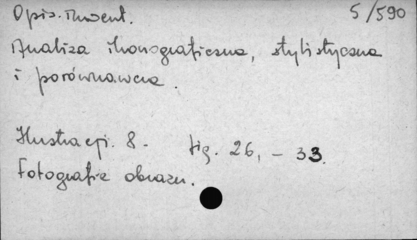 Opis. Inwent. 5/590
Analiza ikonograficzna, stylistyczna
i porównawcza.
Ilustracji. 8. - fig. 26, - 33.
Fotografie obrazu.